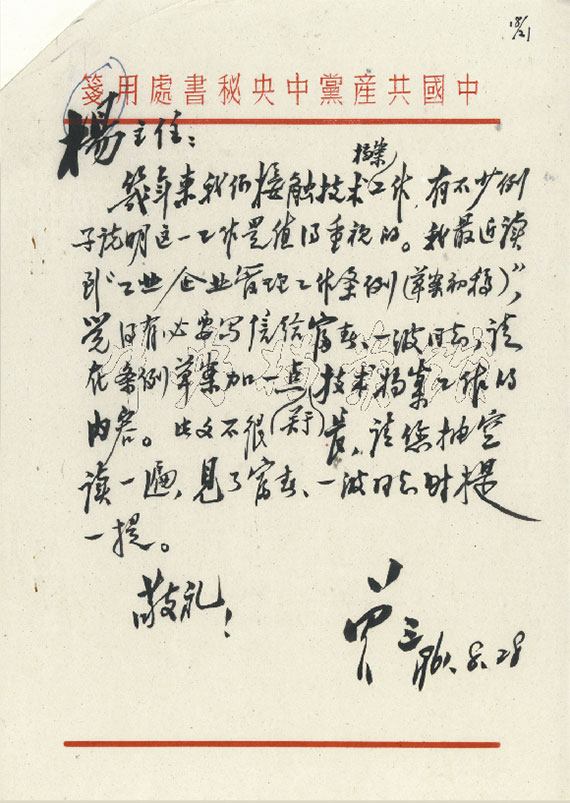 中國共産黨中央秘書處用箋
楊主任：
幾年来我们接触技术档案工作，有不少例
子说明这一工作是值得重视的。我最近读
到“工业企业管理工作条例（草案初稿）”，
觉得有必要写信给富春、一波同志，请
在条例草案加一点技术档案工作的
内容。此文不很（关于）长，请您抽空
读一遍，见了富春、一波同志时提
一提。
敬礼！
曾三 1961.8.28